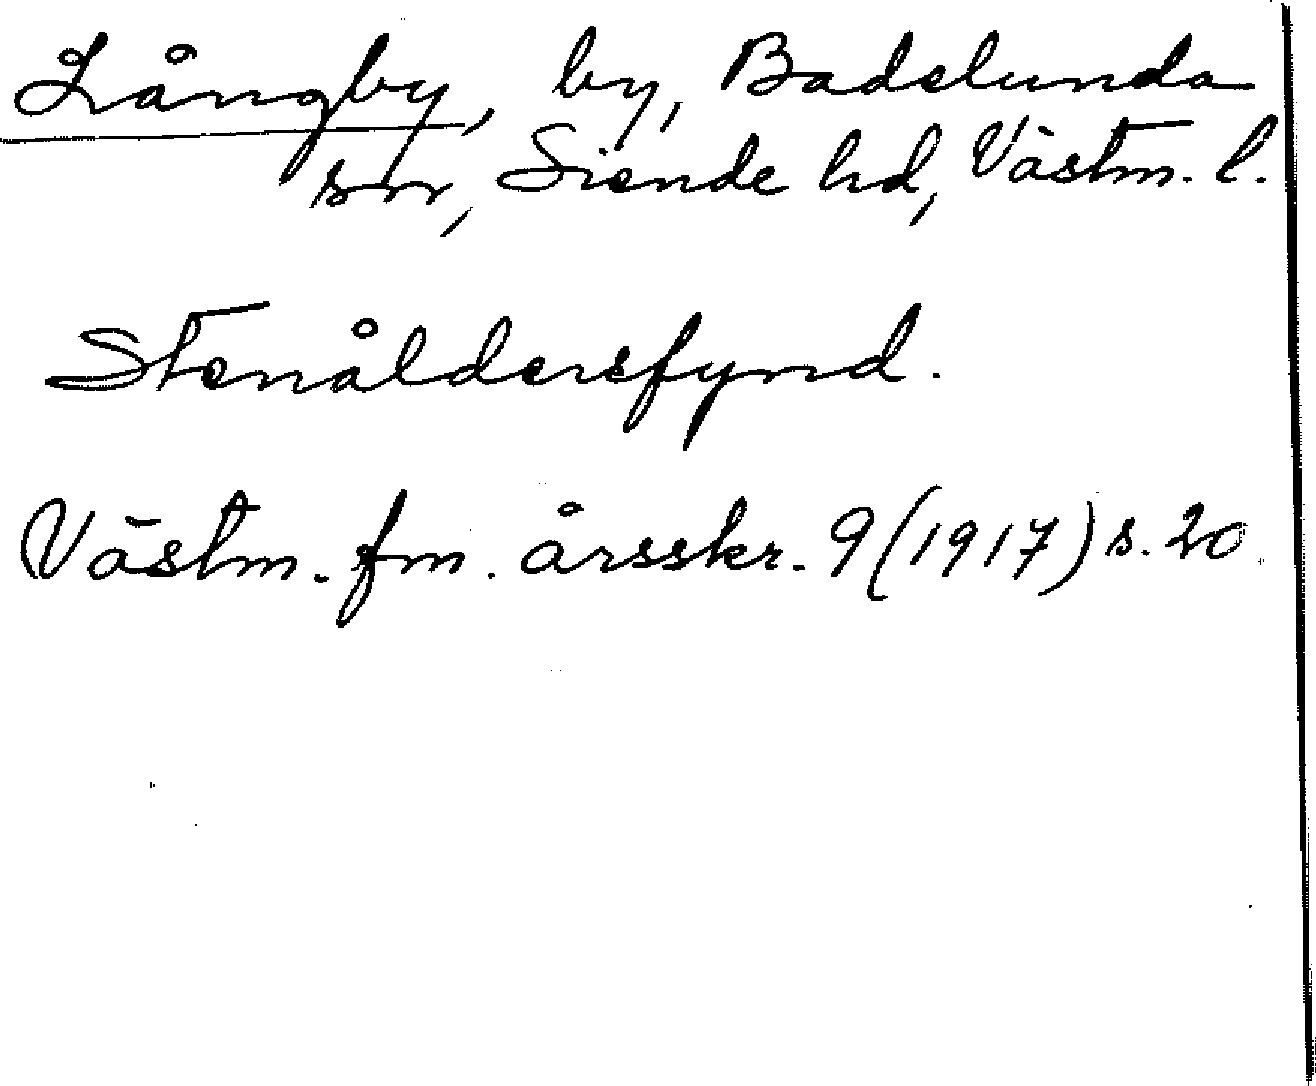 Långby, by, Badelunda
sn, Siende hd, Västm. l.
Stenåldersfynd.
Västm. fm. årsskr. 9 (1917) s. 20